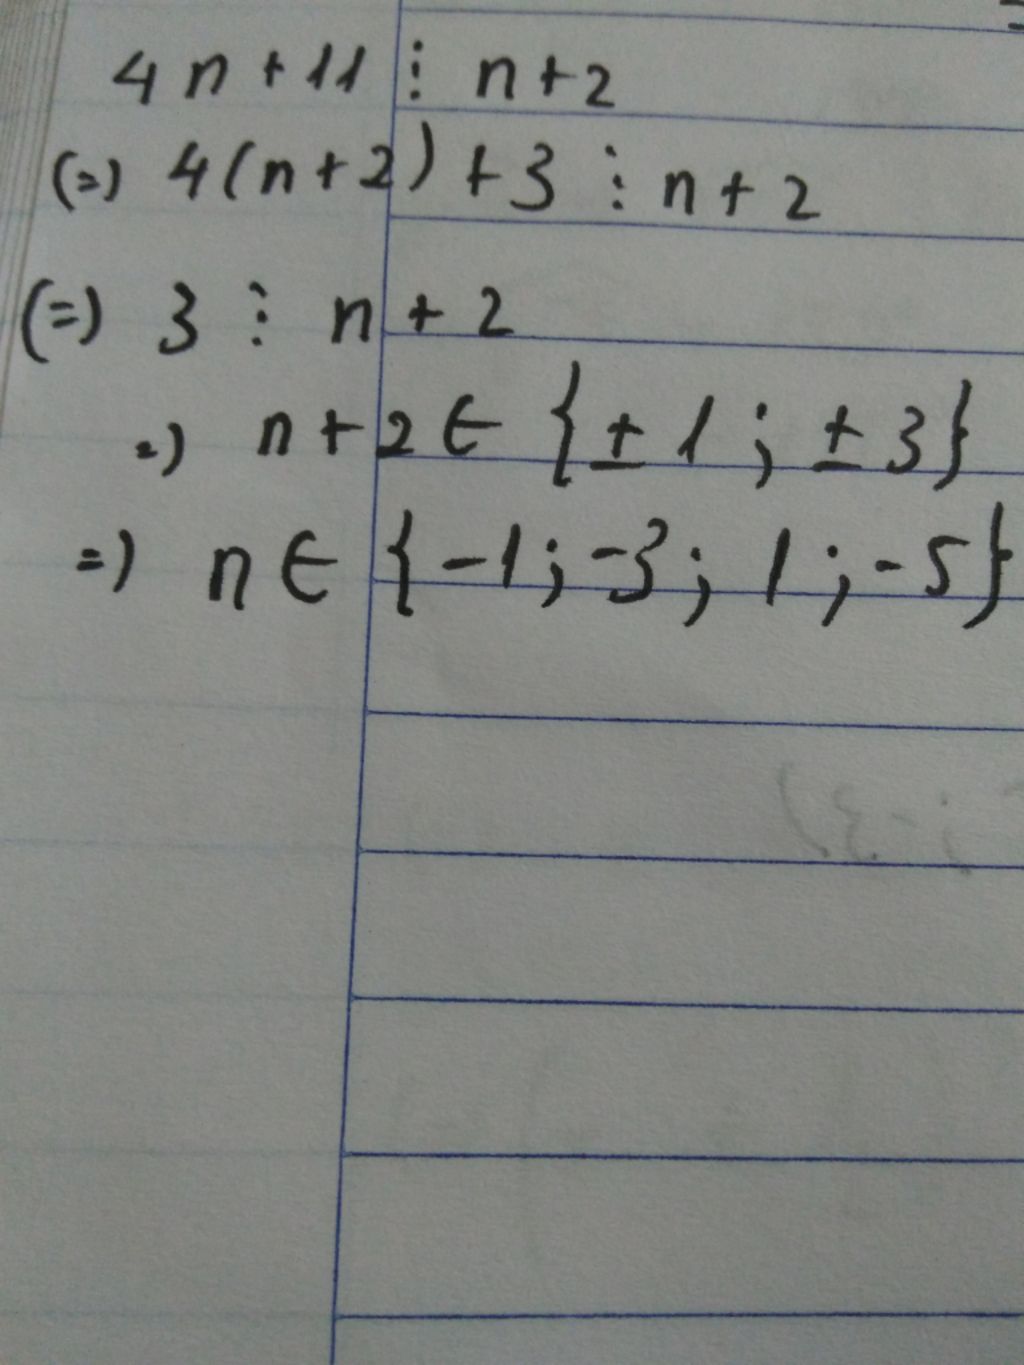 4n+11 ⋮ n+2
(=) 4(n+2)+3 ⋮ n+2
(=) 3 ⋮ n+2
=) n+2 ∈ {±1; ±3}
=) n ∈ {-1; -3; 1; -5}